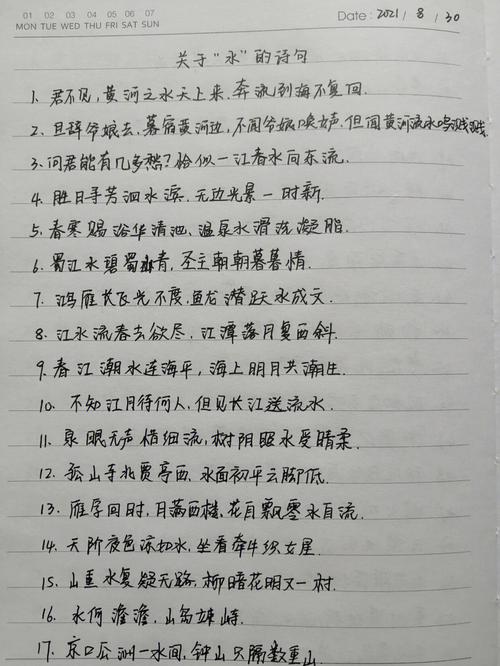 01 02 03 04 05 06 07
MON TUE WED THU FRI SAT SUN
Date: 2021 / 8 / 30
关于"水"的诗句
1、君不见，黄河之水天上来，奔流到海不复回.
2、旦辞爷娘去，暮宿黄河边，不闻爷娘唤女声，但闻黄河流水鸣溅溅.
3、问君能有几多愁？恰似一江春水向东流.
4、胜日寻芳泗水滨，无边光景一时新.
5、春寒赐浴华清池，温泉水滑洗凝脂.
6、蜀江水碧蜀山青，圣主朝朝暮暮情.
7、鸿雁长飞光不度，鱼龙潜跃水成文.
8、江水流春去欲尽，江潭落月复西斜.
9、春江潮水连海平，海上明月共潮生.
10、不知江月待何人，但见长江送流水.
11、泉眼无声惜细流，树阴照水爱晴柔.
12、孤山寺北贾亭西，水面初平云脚低.
13、雁字回时，月满西楼，花自飘零水自流.
14、天阶夜色凉如水，坐看牵牛织女星.
15、山重水复疑无路，柳暗花明又一村.
16、水何澹澹，山岛竦峙.
17、京口瓜洲一水间，钟山只隔数重山.